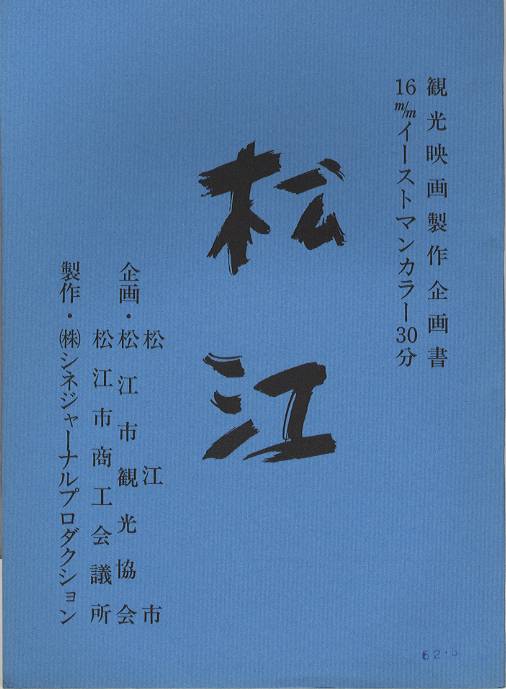 観光映画製作企画書
16m/mイーストマンカラー30分
松江
松江市
企画・松江市観光協会
松江市商工会議所
製作・㈱シネジャーナルプロダクション